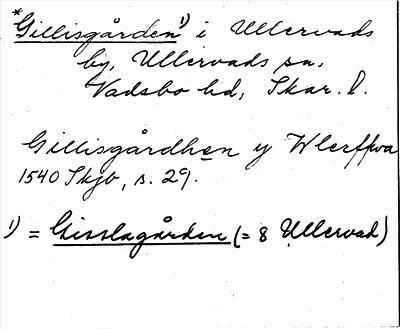 *Gillisgården¹) i Ullervads
by, Ullervads sn,
Vadsbo hd, Skar. l.
Gillisgårdhen y Wlerffwa
1540 Skjb, s. 29.
¹) = Gisslagården (= 8 Ullervad)